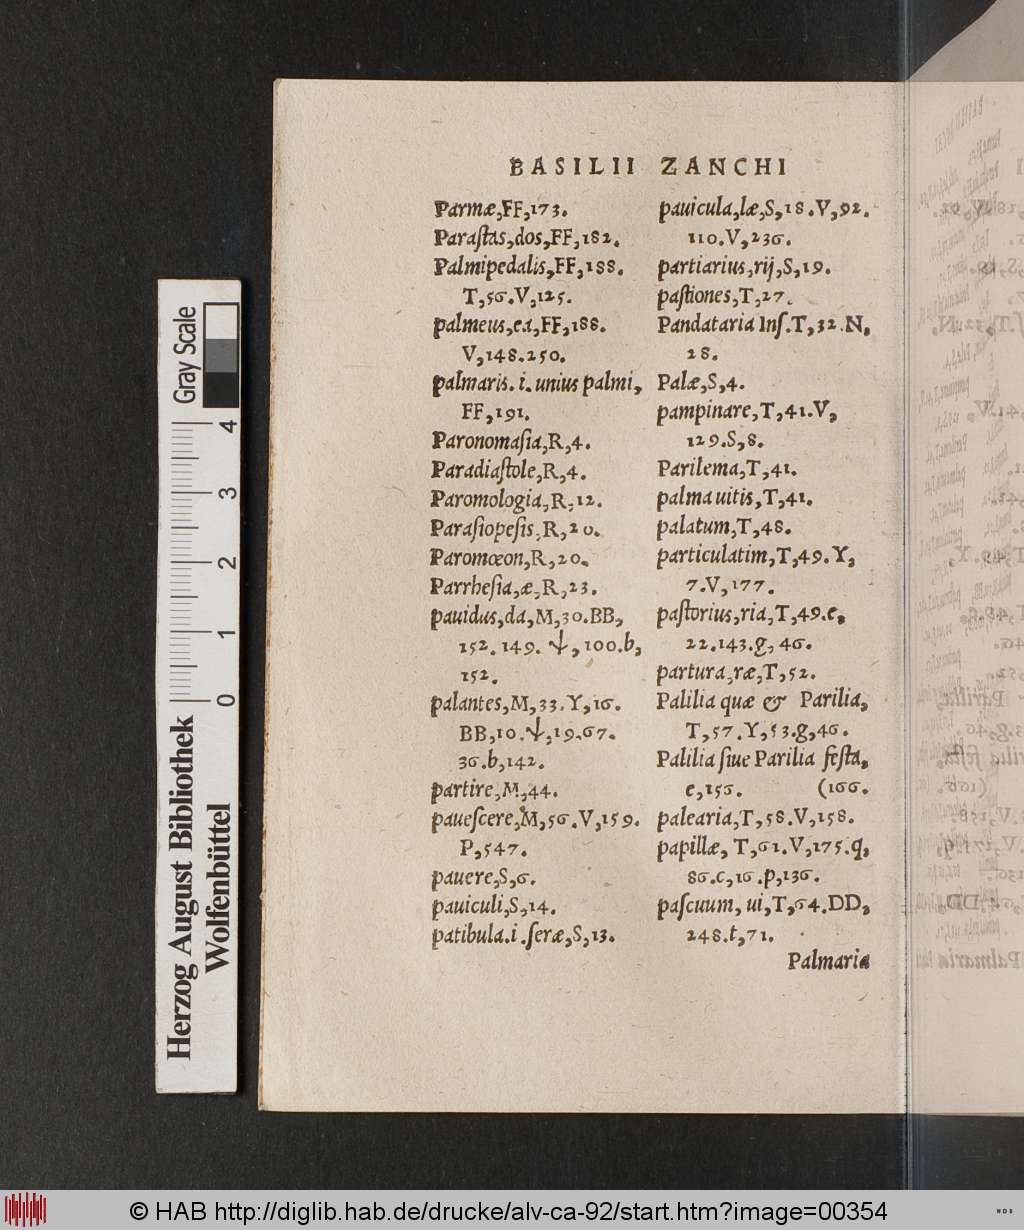 BASILII ZANCHI
Parmæ,FF,173.
Paraſtas,dos,FF,182.
Palmipedalis,FF,188.
T,56.V,125.
palmeus,ea,FF,188.
V,148.250.
palmaris.i.unius palmi,
FF,191.
Paronomaſia,R,4.
Paradiaſtole,R,4.
Paromologia,R,12.
Paraſiopeſis,R,20.
Paromœon,R,20.
Parrheſia,æ,R,23.
pauidus,da,M,30.BB,
152.149.ψ,100.b,
152.
palantes,M,33.Y,16.
BB,10.ψ,19.67.
36.b,142.
partire,M,44.
paueſcere,M,56.V,159.
P,547.
pauere,S,6.
pauiculi,S,14.
patibula.i.ſeræ,S,13.
pauicula,læ,S,18.V,92.
110.V,236.
partiarius,rij,S,19.
paſtiones,T,27.
Pandataria Inſ.T,32.N,
28.
Palæ,S,4.
pampinare,T,41.V,
129.S,8.
Parilema,T,41.
palma uitis,T,41.
palatum,T,48.
particulatim,T,49.Y,
7.V,177.
paſtorius,ria,T,49.e,
22.143.g,46.
partura,ræ,T,52.
Palilia quæ & Parilia,
T,57.Y,53.g,46.
Palilia ſiue Parilia feſta,
e,156. (166.
palearia,T,58.V,158.
papillæ, T,61.V,175.q,
86.c,16.p,136.
paſcuum, ui,T,64.DD,
248.t,71.
Palmaria
Herzog August Bibliothek
Wolfenbüttel
0 1 2 3 4
Gray Scale
© HAB http://diglib.hab.de/drucke/alv-ca-92/start.htm?image=00354